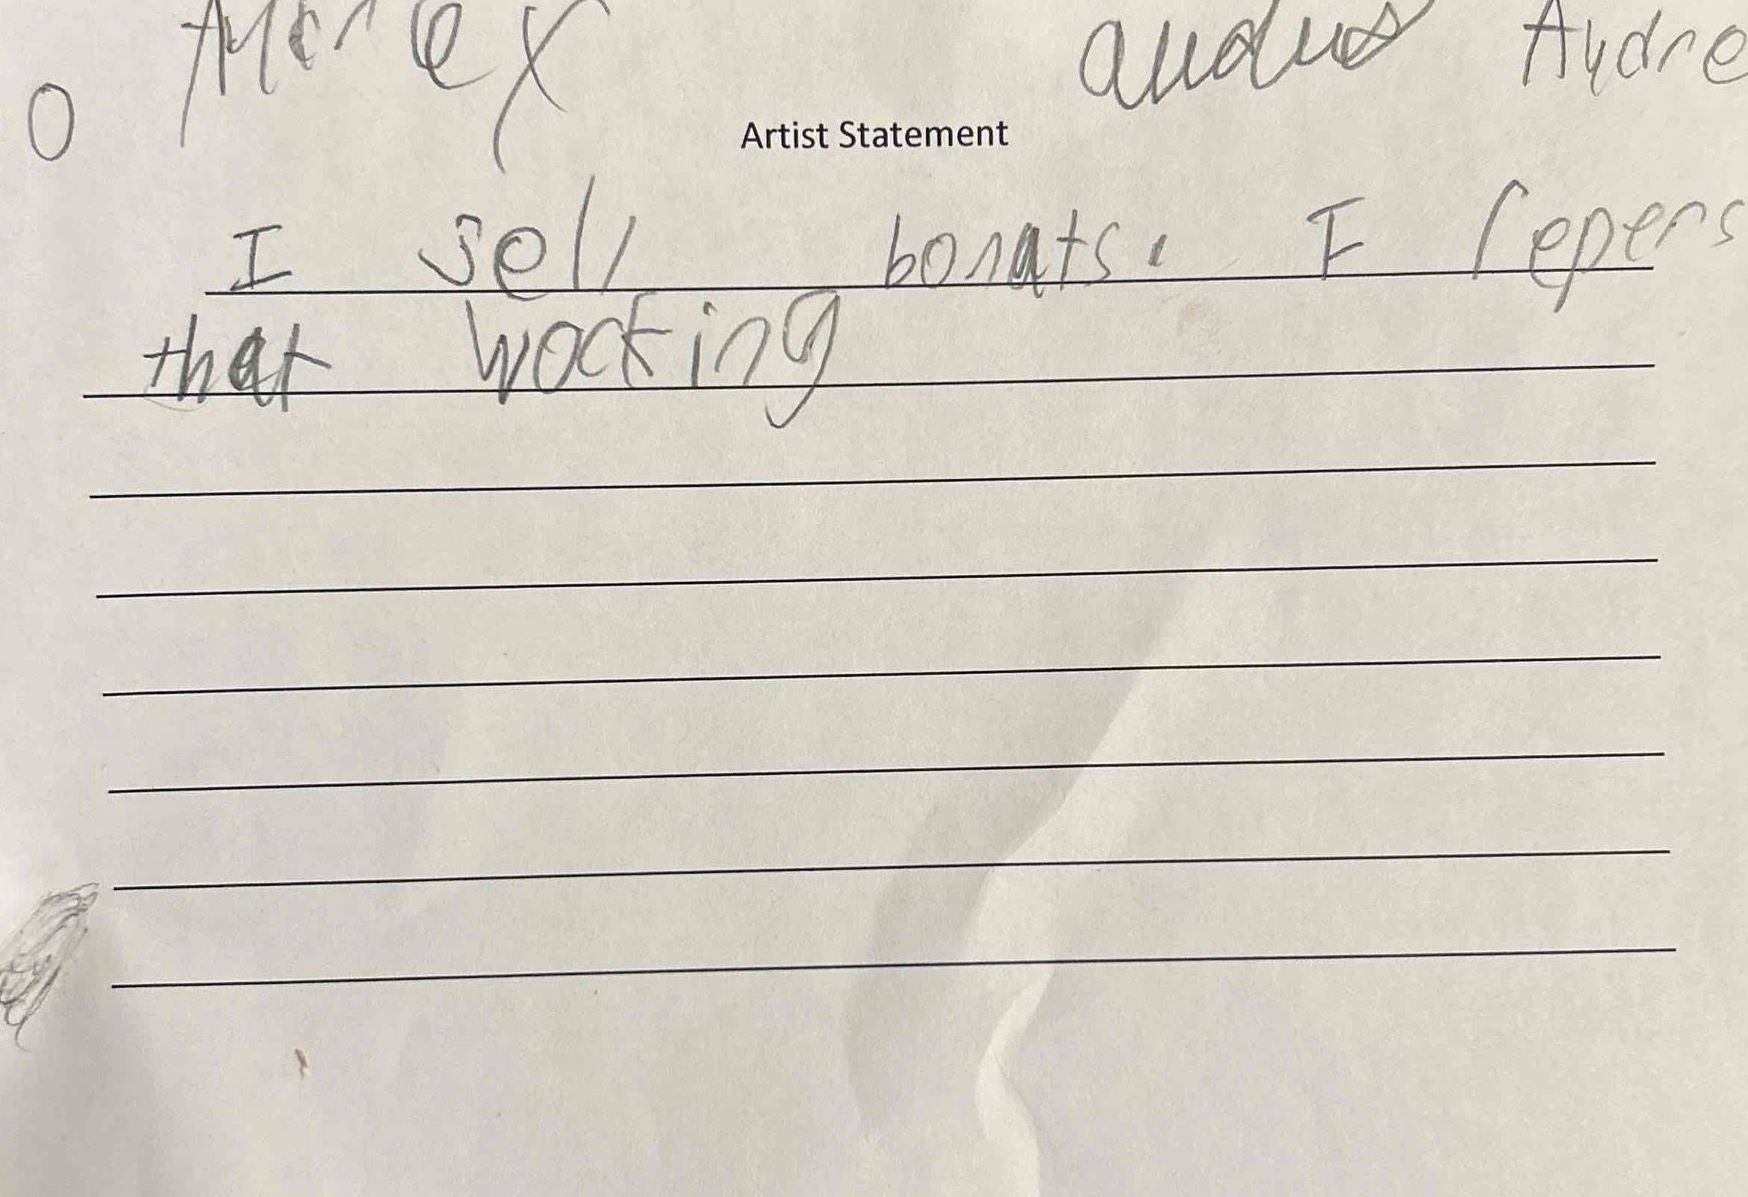 Audre
Artist Statement
I sell bonats. I repers
that working